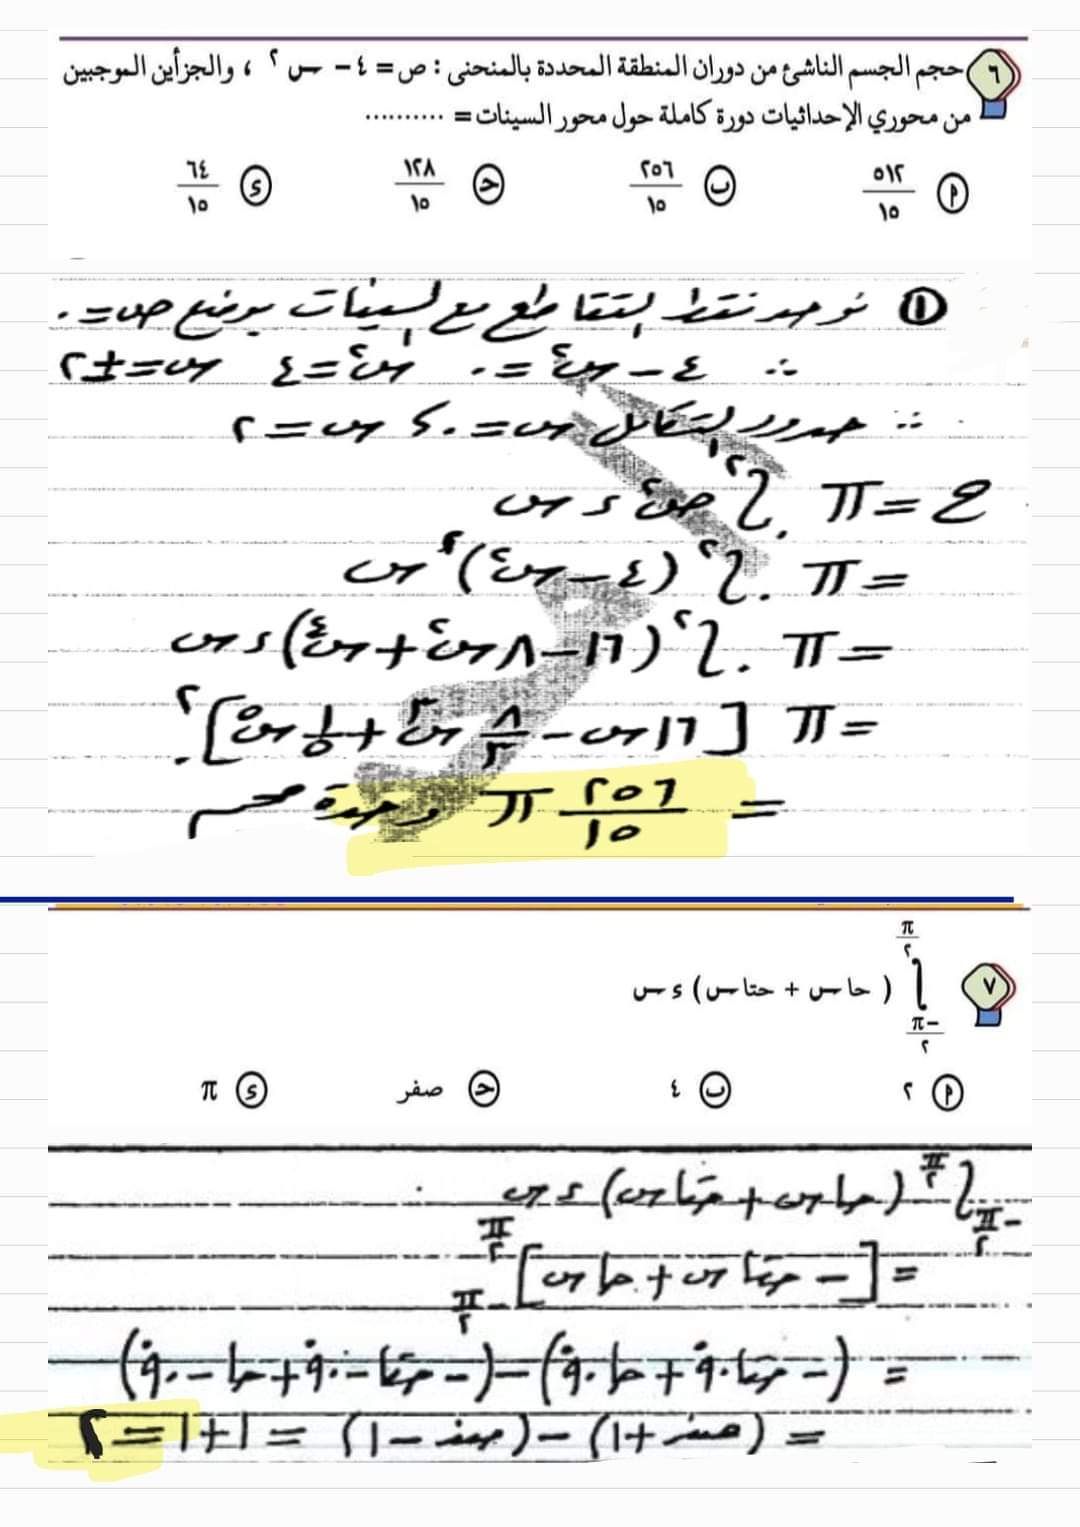 ٦ حجم الجسم الناشئ من دوران المنطقة المحددة بالمنحنى : ص = ٤ - س ٢ ، والجزأين الموجبين
من محوري الإحداثيات دورة كاملة حول محور السينات = ..........
أ ٥١٢/١٥ ب ٢٥٦/١٥ ح ١٢٨/١٥ ء ٦٤/١٥
① نوجد نقط التقاطع مع السينات بوضع ص = ٠
∴ ٤ - س² = ٠ س² = ٤ س = ± ٢
∴ حدود التكامل س = ٠ ، س = ٢
ح = π ∫₀² ص² ء س
= π ∫₀² (٤ - س²)² س
= π ∫₀² (١٦ - ٨ س² + س⁴) ء س
= π [١٦ س - ٨/٣ س³ + ١/٥ س⁵]₀²
= ٢٥٦/١٥ π وحدة حجم
٧ ∫ من -π/٢ إلى π/٢ ( حا س + حتا س ) ء س
أ ٢ ب ٤ ح صفر ء π
∫ من -π/٢ إلى π/٢ (حا س + حتا س) ء س
= [- حتا س + حا س] من -π/٢ إلى π/٢
= (- حتا ٩٠° + حا ٩٠°) - (- حتا - ٩٠° + حا - ٩٠°)
= (صفر + ١) - (صفر - ١) = ١ + ١ = ٢